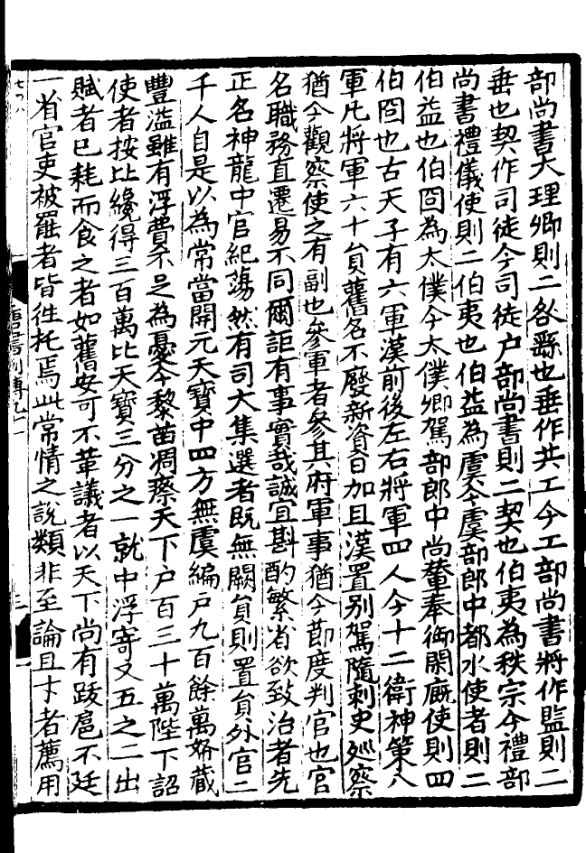 部尚書大理卿則二咎繇也垂作共工今工部尚書將作監則二
垂也契作司徒今司徒户部尚書則二契也伯夷為秩宗今禮部
尚書禮儀使則二伯夷也伯益為虞今虞部郎中都水使者則二
伯益也伯冏為太僕今太僕卿駕部郎中尚輦奉御閑廐使則四
伯冏也古天子有六軍漢前後左右將軍四人今十二衛神策八
軍凡將軍六十員舊名不廢新資日加且漢置别駕隨刺史巡察
猶今觀察使之有副也參軍者參其府軍事猶今節度判官也官
名職務直遷易不同爾詎有事實哉誠宜斟酌繁省欲致治者先
正名神龍中官紀蕩然有司大集選者既無闕員則置員外官二
千人自是以為常當開元天寶中四方無虞編户九百餘萬帑藏
豐溢雖有浮費不足為憂今黎苗凋瘵天下户百三十萬陛下詔
使者按比纔得三百萬比天寶三分之一就中浮寄又五之二出
賦者已耗而食之者如舊安可不革議者以天下尚有跋扈不廷
一省官吏被罷者皆往托焉此常情之說類非至論且才者薦用